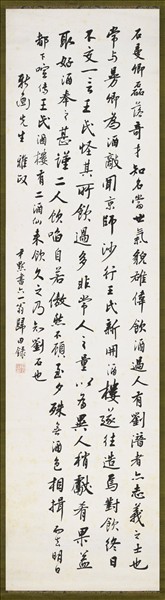 石曼卿磊落奇才知名當世氣貌雄偉飲酒過人有劉潛者亦志義之士也
常與曼卿為酒敵聞京師沙行王氏新開酒樓遂往造焉對飲終日
不交一言王氏怪其所飲過多非常人之量以為異人稍獻肴果益
取好酒奉之甚謹二人飲啗自若傲然不顧至夕殊無酒色相揖而去明日
都下喧傳王氏酒樓有二酒仙來飲久之乃知劉石也
先生雅政
尹默書六一翁歸田錄